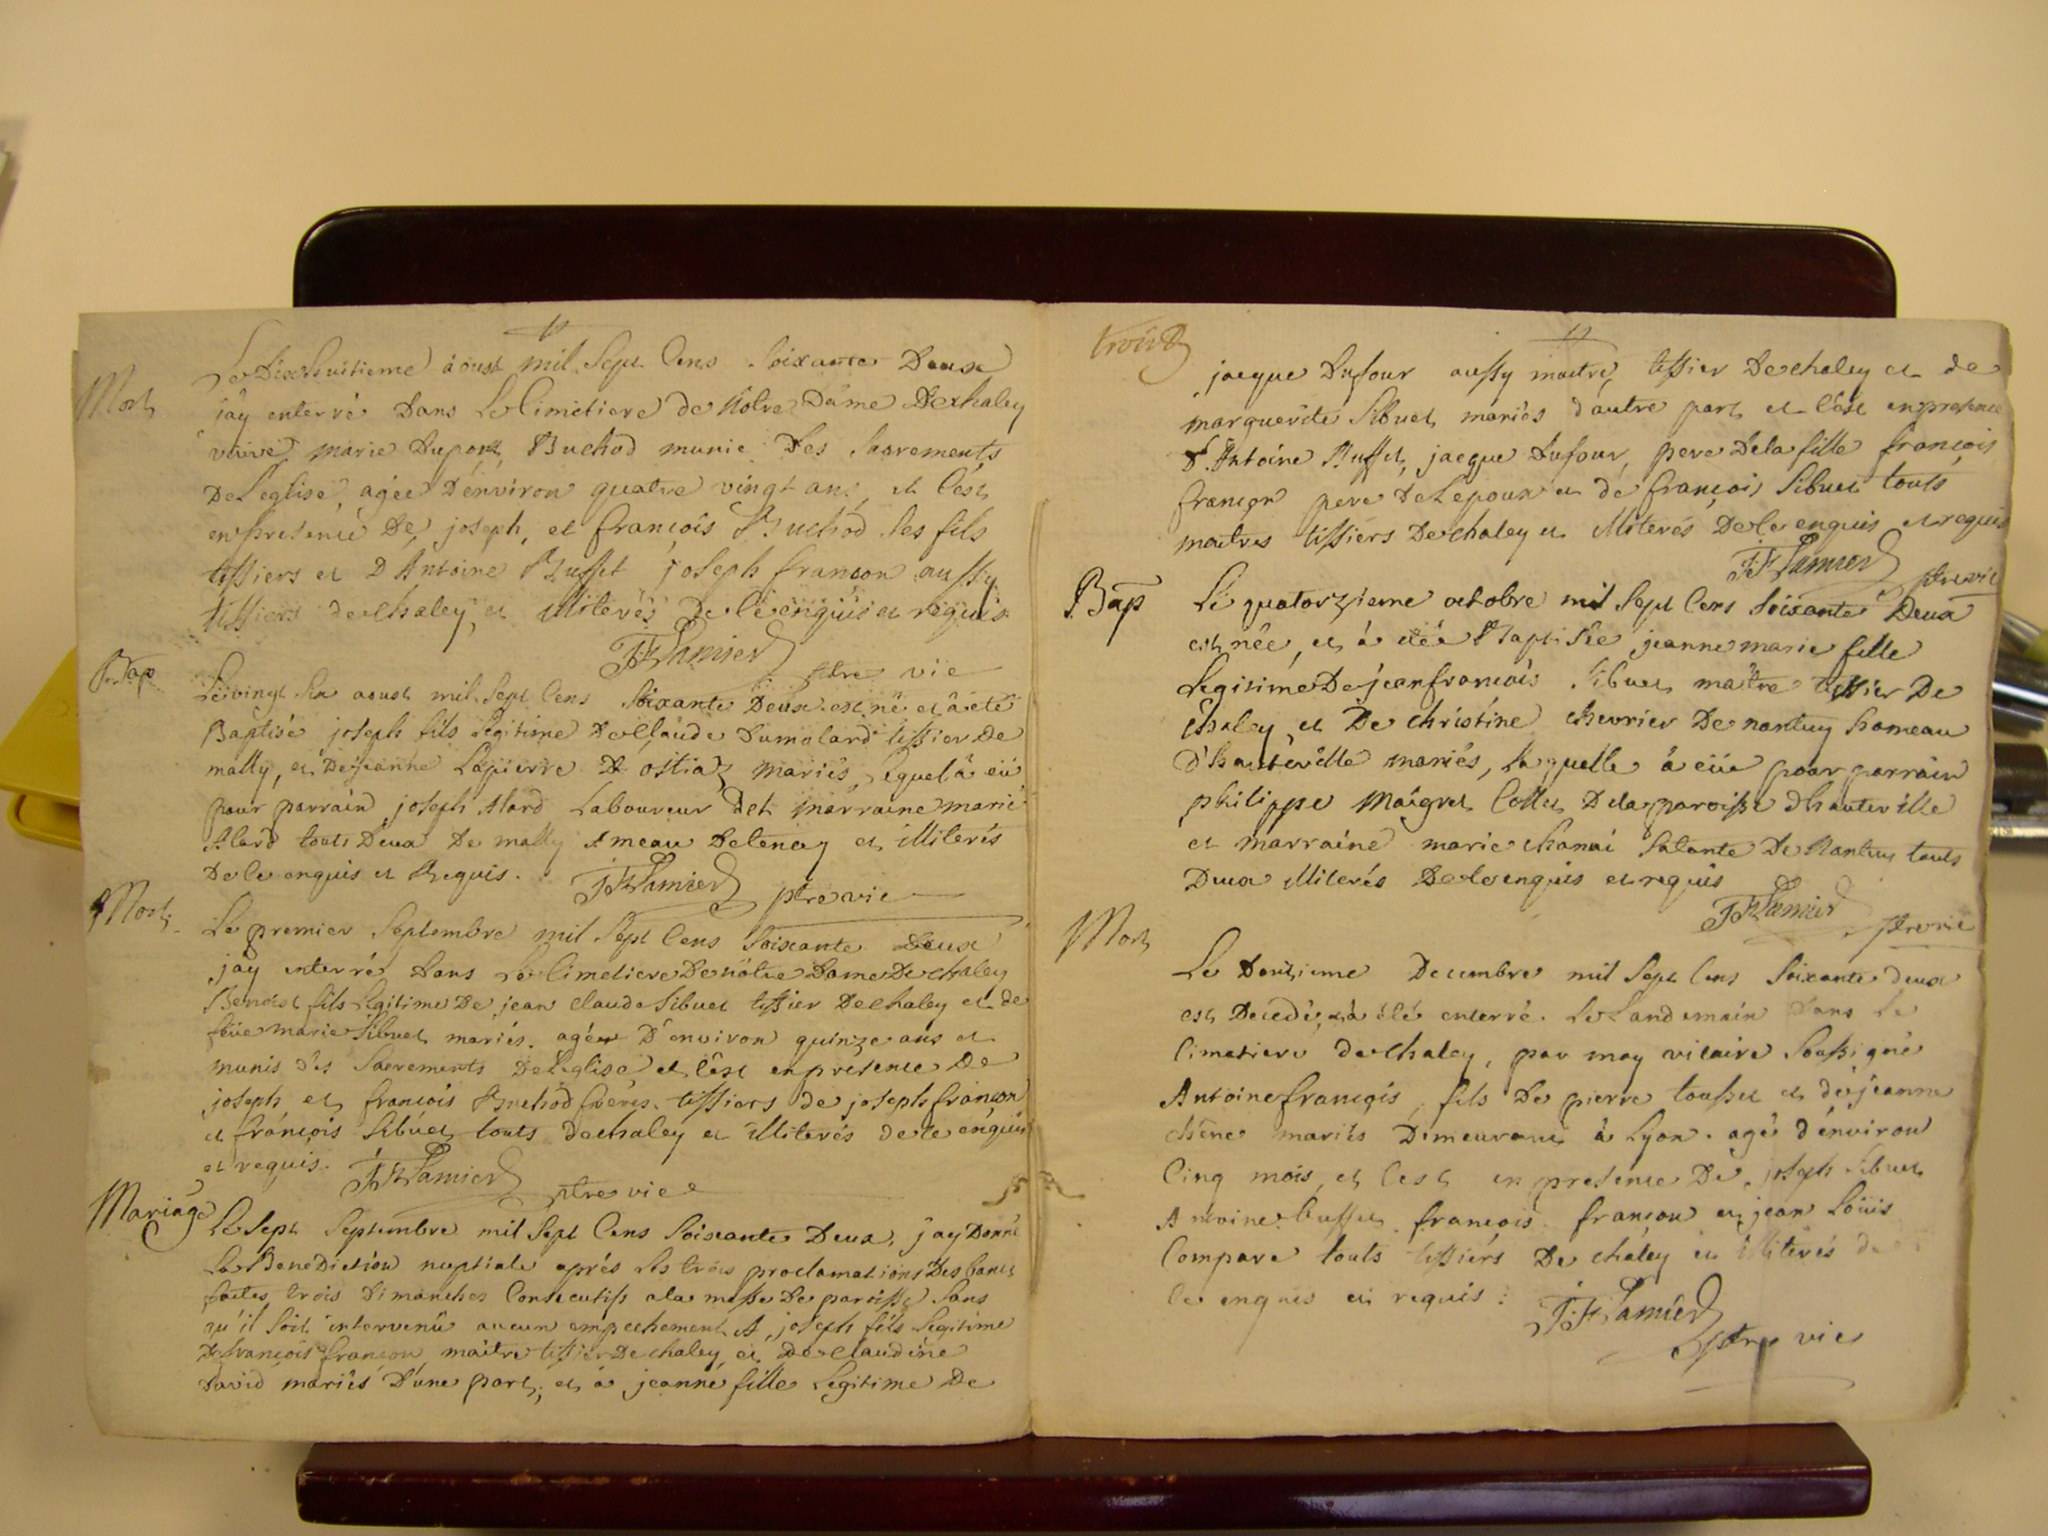 Mort
Le Dixhuitieme àoust mil Sept Cens Soixante Deux
j'ay enterré Dans Le Cimetiere de Nôtre Dame De chaley
marie Dupont Buchod munie Des Sacrements
De L'eglise, agée D'environ quatre vingt ans, et c'ést
en presence De joseph, et françois Buchod ses fils
tissiers et D'Antoine Buffet joseph françon aussy
tissiers de chaley, et illiterés de ce enquis et requis
J:F Lamier ptre vic
Bap
Le vingt Six aoust mil Sept Cens Soixante Deux est né et à été
Baptisé joseph fils Legitime De Claude Dumolard tissier De
mally, et De jeanne Lapierre D'ostiaz mariés, Lequel à eü
pour parrain joseph Alard Laboureur et marraine marie
Alard touts Deux De mally Ameau De tenay et illiterés
De ce enquis et Requis. J:F Lamier ptre vic
Mort
Le premier Septembre mil Sept Cens Soixante Deux
j'ay enterré Dans Le Cimetiere De nôtre Dame De chaley
Benoist fils Legitime De jean claude Sibuet tissier De chaley et de
feüe marie Sibuet mariés. agé D'environ quinze ans et
munis des Sacrements De L'eglise, et c'ést en presence De
joseph et françois Buchod freres. tissiers de joseph françon
et françois Sibuet touts de chaley et illiterés de ce enquis
et requis. J:F Lamier ptre vic
Mariage
Le Sept Septembre mil Sept Cens Soixante Deux, j'ay Donné
La Benediction nuptiale aprés Les trois proclamations Des bancs
faites trois Dimanches Consecutifs a la messe De paroisse Sans
qu'il soit intervenû aucun empechement A joseph fils Legitime
De françois françon maitre tissier De chaley et De claudine
David mariés D'une part, et à jeanne fille Legitime De
jacque Dufour aussy maitre tissier De chaley et de
marguerite Sibuet mariés d'autre part et c'ést en presence
d'Antoine Buffet, jacque Dufour, pere De la fille françois
françon pere De L'epoux et de françois Sibuet touts
maitres tissiers De chaley et illiterés De ce enquis et requis
J:F Lamier ptre vic
Bap
Le quatorzieme octobre mil Sept Cens Soixante Deux
est née, et à eté Baptisée jeanne marie fille
Legitime De jean françois Sibuet maître tissier De
chaley et De christine chevrier De nantuy hameau
D'hauteville mariés, Laquelle à eüe pour parrain
philippe Maigret Collet De la paroisse d'hauteville
et marraine marie chanai Sa tante De Nantuy touts
Deux illiterés De ce enquis et requis
J:F Lamier ptre vic
Mort
Le Decembre mil Sept Cens Soixante deux
est Decedé, et à été enterré Le Landemain Dans Le
Cimetiere de chaley, par moy vicaire Soussigné
Antoine françois, fils De pierre tousset et de jeanne
chêne mariés Demeurant à Lyon. agé d'environ
Cinq mois, et c'est en presence De joseph Sibuet
Antoine buffet françois françon et jean Loüis
Compare touts tissiers De chaley et illiterés de
ce enquis et requis: J:F Lamier
ptre vic